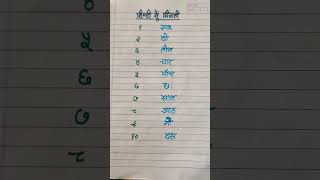 हिन्दी में गिनती
१ एक
२ दो
३ तीन
४ चार
५ पाँच
६ छः
७ सात
८ आठ
९ नौ
१० दस